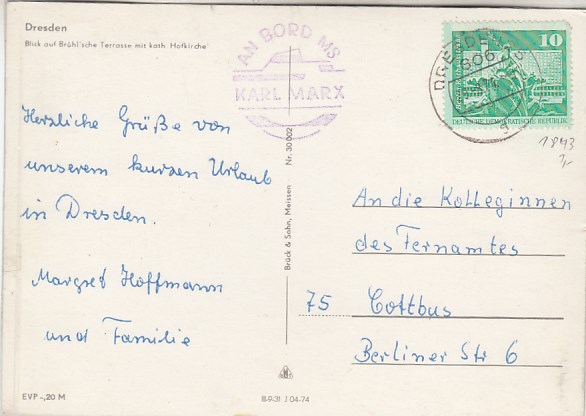 Dresden
Blick auf Brühl'sche Terrasse mit kath. Hofkirche
AN BORD MS
KARL MARX
10
DEUTSCHE DEMOKRATISCHE REPUBLIK
1843
Herzliche Grüße von
unserem kurzen Urlaub
in Dresden.
Margret Hoffmann
und Familie
Brück & Sohn, Meissen Nr. 30 002
An die Kolleginnen
des Fernamtes
75 Cottbus
Berliner Str 6
EVP -,20 M
III-9-31 J 04-74